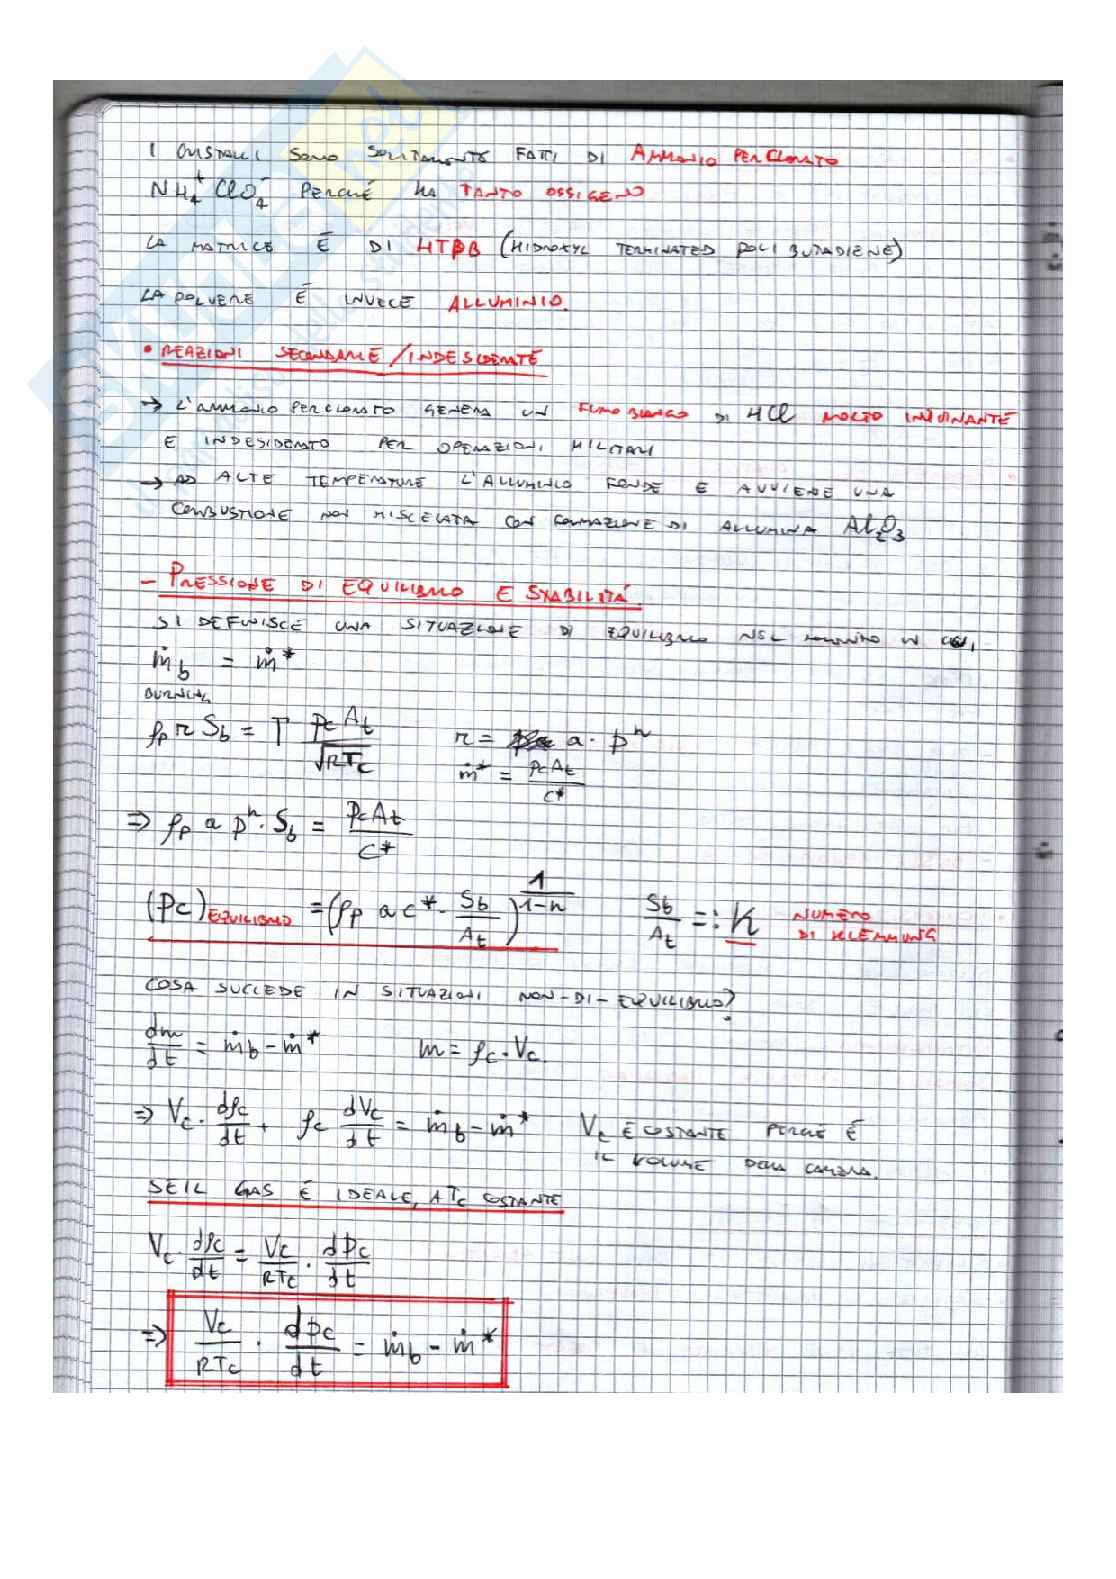 I CRISTALLI SONO SOLITAMENTE FATTI DI AMMONIO PERCLORATO
NH₄⁺ ClO₄⁻ PERCHÉ HA TANTO OSSIGENO
LA MATRICE È DI HTPB (HIDROXYL TERMINATED POLIBUTADIENE)
LA POLVERE È INVECE ALLUMINIO.
• REAZIONI SECONDARIE/INDESIDERATE
→ L'AMMONIO PERCLORATO GENERA UN FUMO BIANCO DI HCl MOLTO INQUINANTE
E INDESIDERATO PER OPERAZIONI MILITARI
→ AD ALTE TEMPERATURE L'ALLUMINIO FONDE E AVVIENE UNA
COMBUSTIONE NON MISCELATA CON FORMAZIONE DI ALLUMINA Al₂O₃
- PRESSIONE DI EQUILIBRIO E STABILITÁ.
SI DEFINISCE UNA SITUAZIONE DI EQUILIBRIO NEL MOMENTO IN CUI
ṁb = ṁ*
BURNING
ρp r Sb = Γ pc At / √RTc    r = a · pⁿ
ṁ* = pc At / c*
⇒ ρp a pⁿ · Sb = pc At / c*
(Pc)EQUILIBRIO = (ρp a c* · Sb/At)^(1/(1-n))    Sb/At =: K NUMERO
DI KLEMMUNG
COSA SUCCEDE IN SITUAZIONI NON-DI-EQUILIBRIO?
dm/dt = ṁb - ṁ*    m = ρc · Vc.
⇒ Vc · dρc/dt + ρc dVc/dt = ṁb - ṁ*    Vc È COSTANTE PERCHÉ È
IL VOLUME DELLA CAMERA.
SE IL GAS È IDEALE, A Tc COSTANTE
Vc · dρc/dt = Vc/RTc · dPc/dt
⇒ Vc/RTc · dpc/dt = ṁb - ṁ*